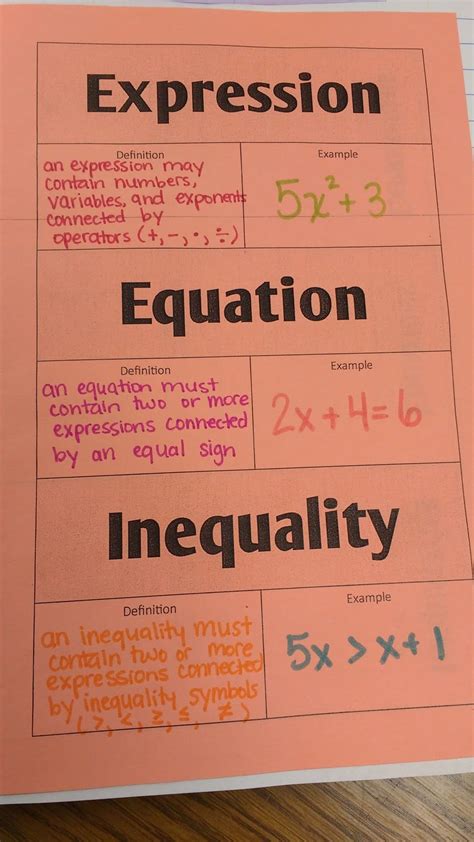 Expression
Definition
an expression may
contain numbers,
variables, and exponents
connected by
operators (+, -, ·, ÷)
Example
5x²+3
Equation
Definition
an equation must
contain two or more
expressions connected
by an equal sign
Example
2x+4=6
Inequality
Definition
an inequality must
contain two or more
expressions connected
by inequality symbols
(>, <, ≥, ≤, ≠)
Example
5x > x+1